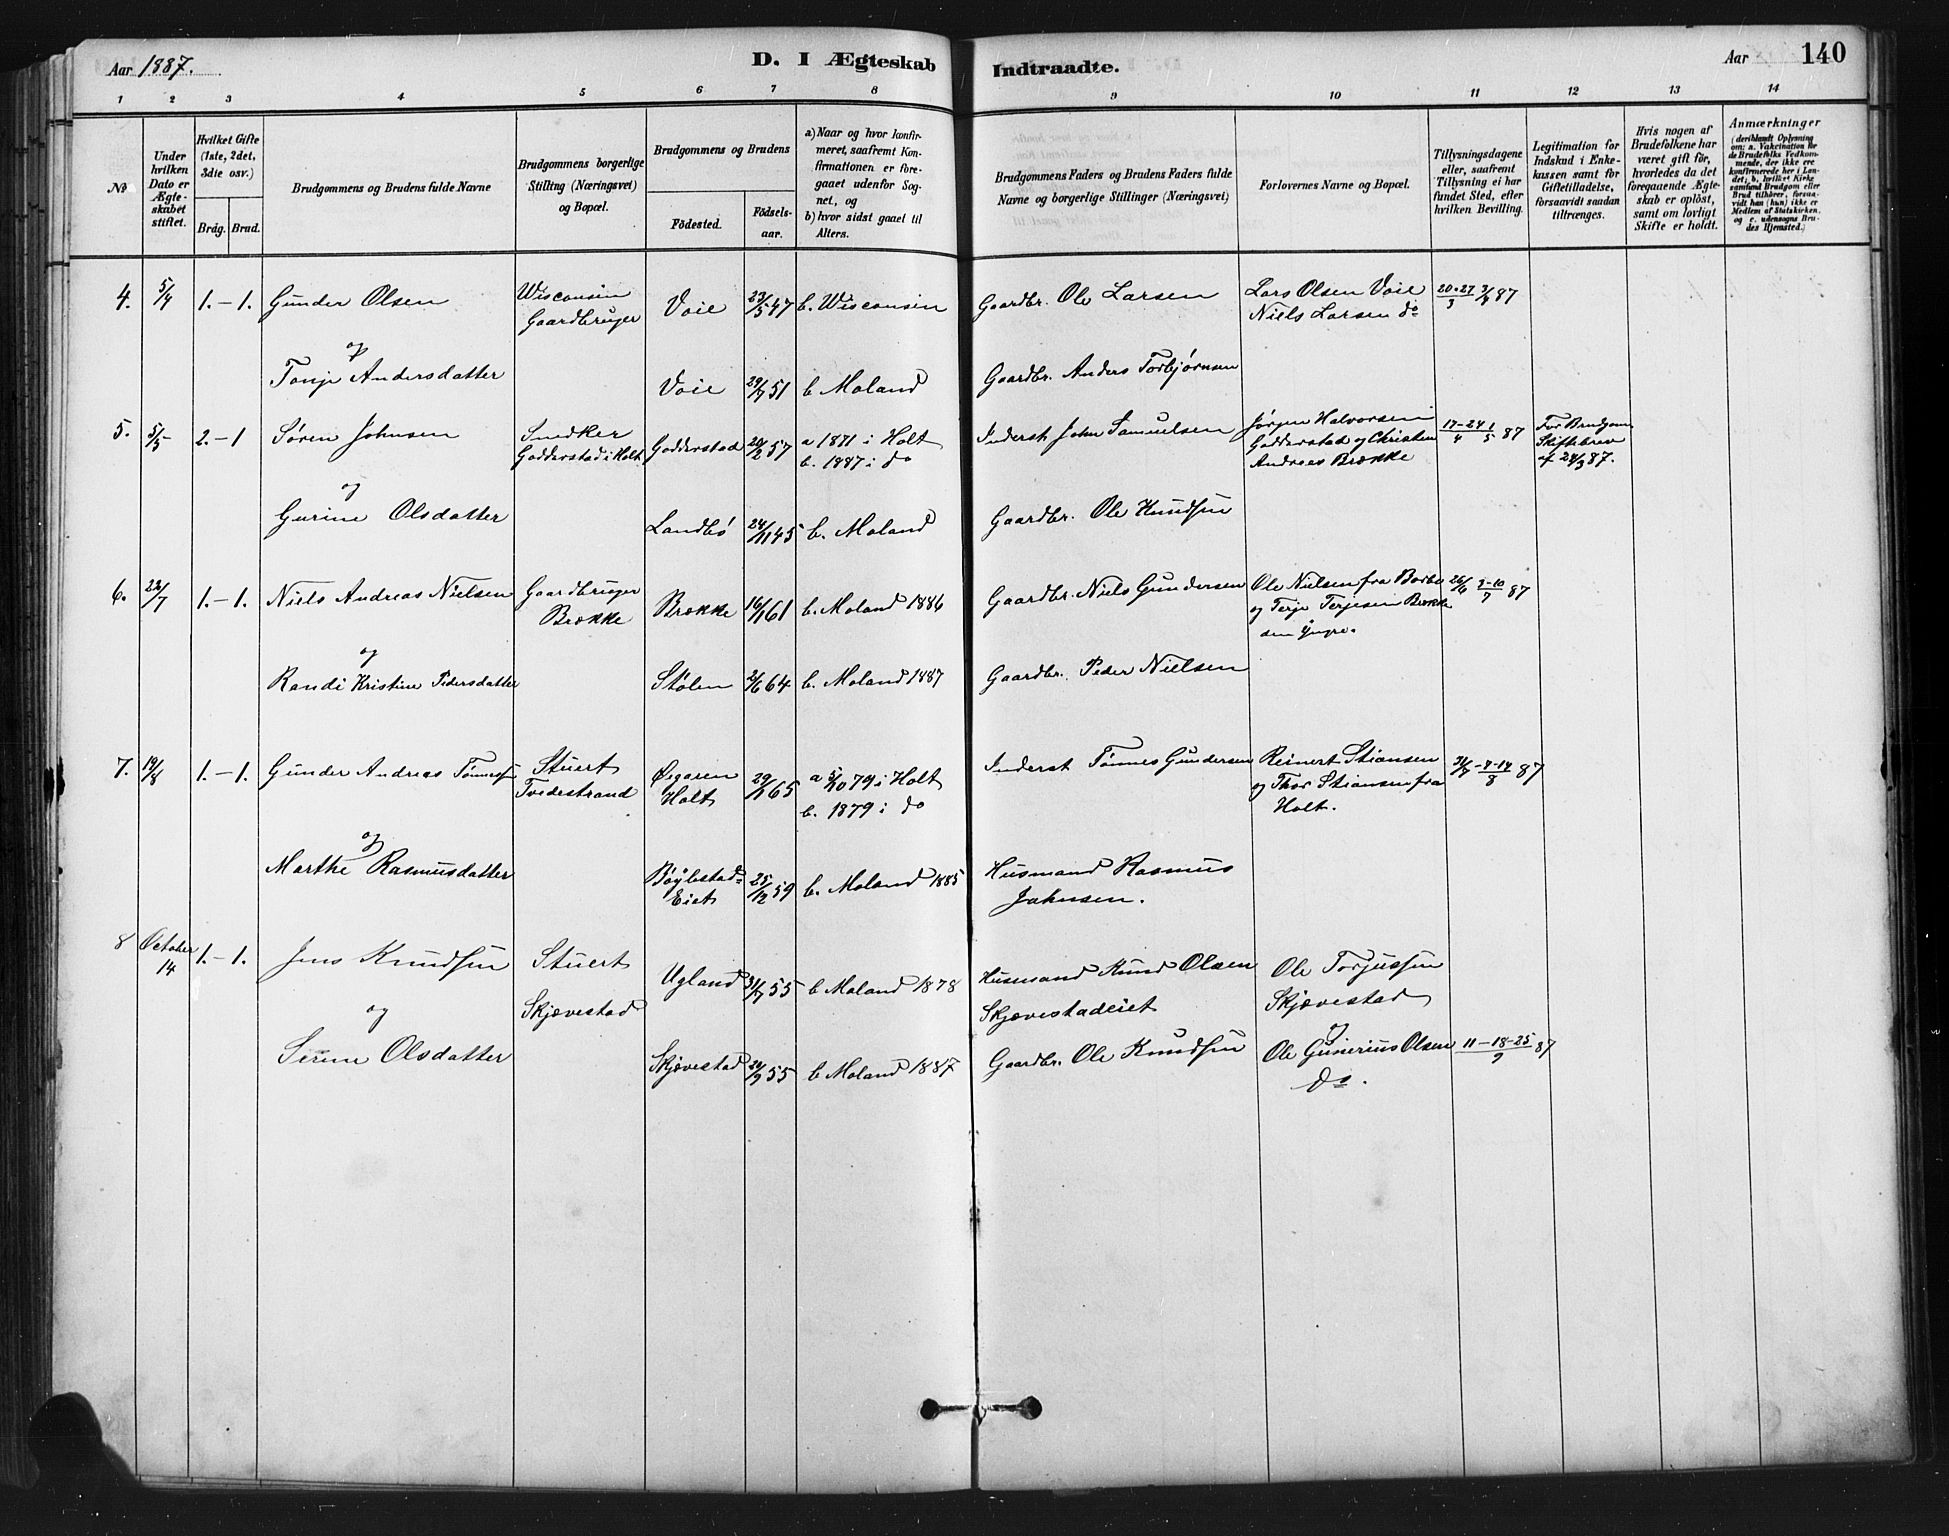 Aar 1887.
D. I Ægteskab Indtraadte.
Aar 140
1 2 3 4 5 6 7 8 9 10 11 12 13 14
No
Under hvilken Dato er Ægteskabet stiftet.
Hvilket Gifte (1ste, 2det, 3die osv.)
Bråg. Brud.
Brudgommens og Brudens fulde Navne
Brudgommens borgerlige Stilling (Næringsvei) og Bopæl.
Brudgommens og Brudens
Födested.
Födsels-aar.
a) Naar og hvor konfirmeret, saafremt Konfirmationen er foregaaet udenfor Sognet, og
b) hvor sidst gaaet til Alters.
Brudgommens Faders og Brudens Faders fulde Navne og borgerlige Stillinger (Næringsvei)
Forlovernes Navne og Bopæl.
Tillysningsdagene eller, saafremt Tillysning ei har fundet Sted, efter hvilken Bevilling.
Legitimation for Indskud i Enkekassen samt for Giftetilladelse, forsaavidt saadan tiltrænges.
Hvis nogen af Brudefolkene har været gift för, hvorledes da det foregaaende Ægteskab er oplöst, samt om lovligt Skifte er holdt.
Anmærkninger
(deriblandt Oplysning om: a. Vakcination for de Brudefolks Vedkommende, der ikke ere konfirmerede her i Landet; b. hvilket Kirkesamfund Brudgom eller Brud tilhörer, forsaavidt han (hun) ikke er Medlem af Statskirken. og c. udensogns Brudes Hjemsted.)
4. 5/4 1. – 1. Gunder Olsen Wisconsin Gaardbruger Voie 23/5 47 b. Wisconsin Gaardbr. Ole Larsen Lars Olsen Voie Niels Larsen do 20-27/3 3/4 87
og
Tonje Andersdatter Voie 29/7 51 b Moland Gaardbr. Anders Torbjørnsen
5. 5/5 2. – 1 Søren Johnsen Snedker Godderstad i Holt Godderstad 20/2 57 a 1871 i Holt b. 1887 i do Inderst John Samuelsen Jørgen Halvorsen Godderstad og Christen Andreas Brække 17-24/4 1/5 87 For Brudgom Skiftebrev af 24/3 87.
og
Gurine Olsdatter Landbö 24/11 45 b. Moland Gaardbr. Ole Knudsen
6. 22/7 1. – 1. Niels Andreas Nielsen Gaardbruger Brække Brække 16/1 61 b. Moland 1886 Gaardbr. Niels Gundersen Ole Nielsen fra Borbo og Terje Terjesen Brække den Yngre. 26/6 3-10/7 87
og
Randi Kristine Pedersdatter Stølen 2/6 64 b. Moland 1887 Gaardbr. Peder Nielsen
7. 19/8 1. – 1. Gunder Andreas Tønnes. Stuert Tvedestrand Øigaren Holt 29/1 65 a 5/10 79 i Holt b. 1879 i do Inderst Tønnes Gundersen Reinert Stiansen og Thor Stiansen fra Holt. 31/7 – 7-14/8 87
og
Marthe Rasmusdatter Bøylestad Eiet 25/12 59 b. Moland 1885 Husmand Rasmus Johnsen.
8 October 14 1. – 1. Jens Knudsen Stuert Skjævestad Ugland 31/7 55 b Moland 1878 Husmand Knud Olsen Skjævestadeiet Ole Torjussen Skjævestad
og
Serine Olsdatter Skjævestad 20/9 55 b Moland 1887 Gaardbr. Ole Knudsen og Ole Gunerius Olsen do. 11-18-25/9 87